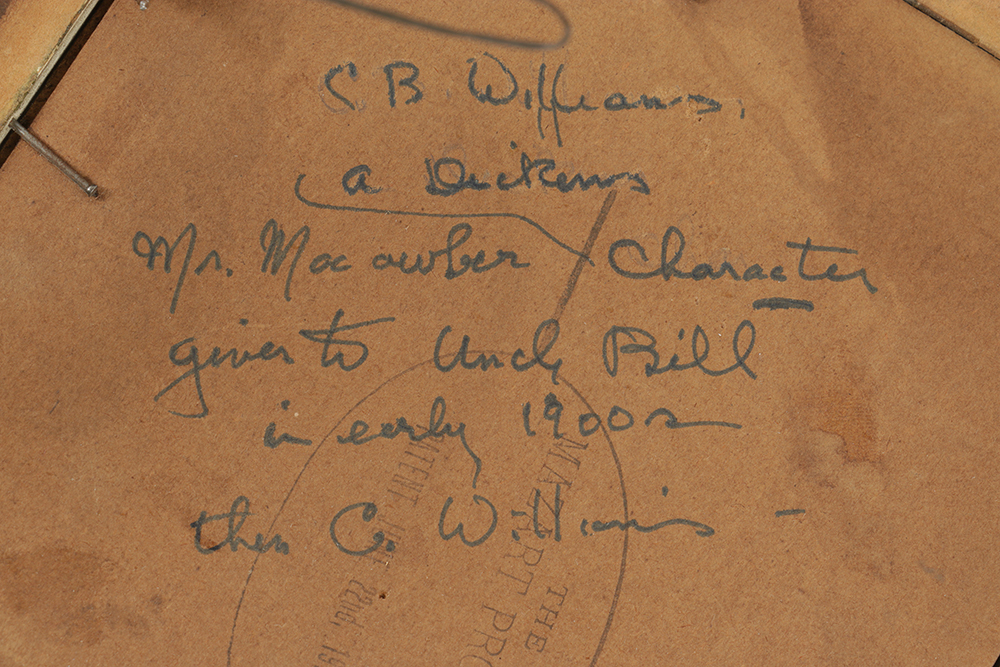 C B Williams,
a Dickens
Mr. Macawber Character
given to Uncle Bill
in early 1900s
then C. Williams -
THE
MAZART PRO
PATENT JUNE 22nd, 19